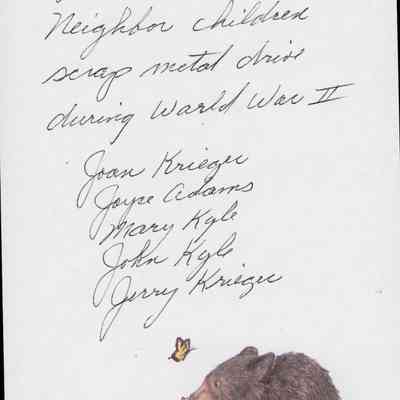 Neighbor children
scrap metal drive
during World War II
Joan Krieger
Joyce Adams
Mary Kyle
John Kyle
Jerry Krieger